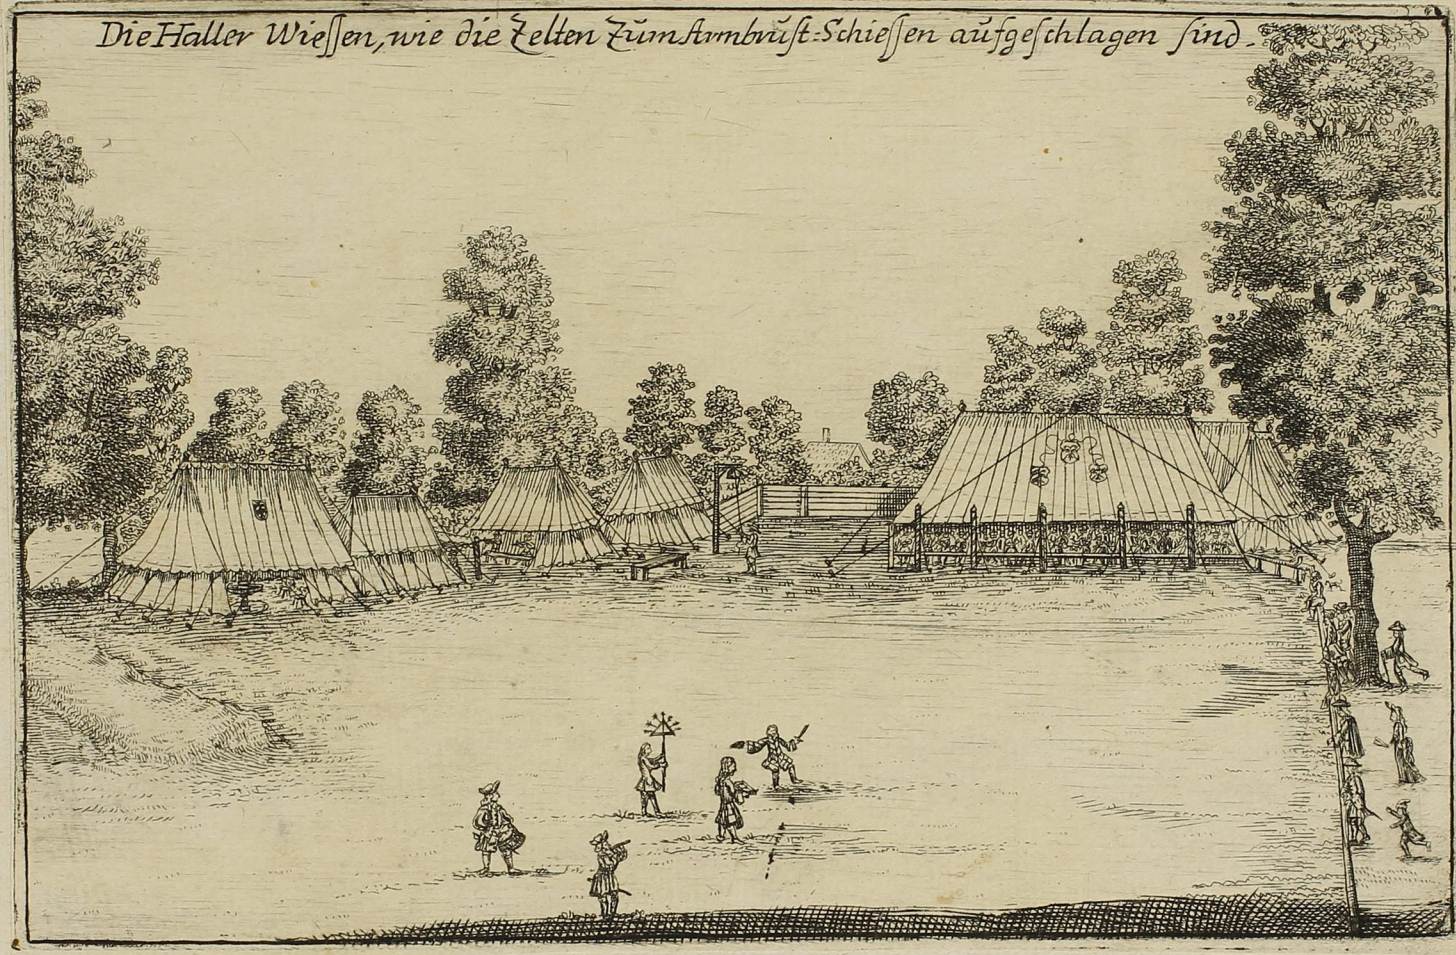 Die Haller Wieſſen, wie die Zelten Zum Armbruſt-Schieſſen aufgeſchlagen ſind.